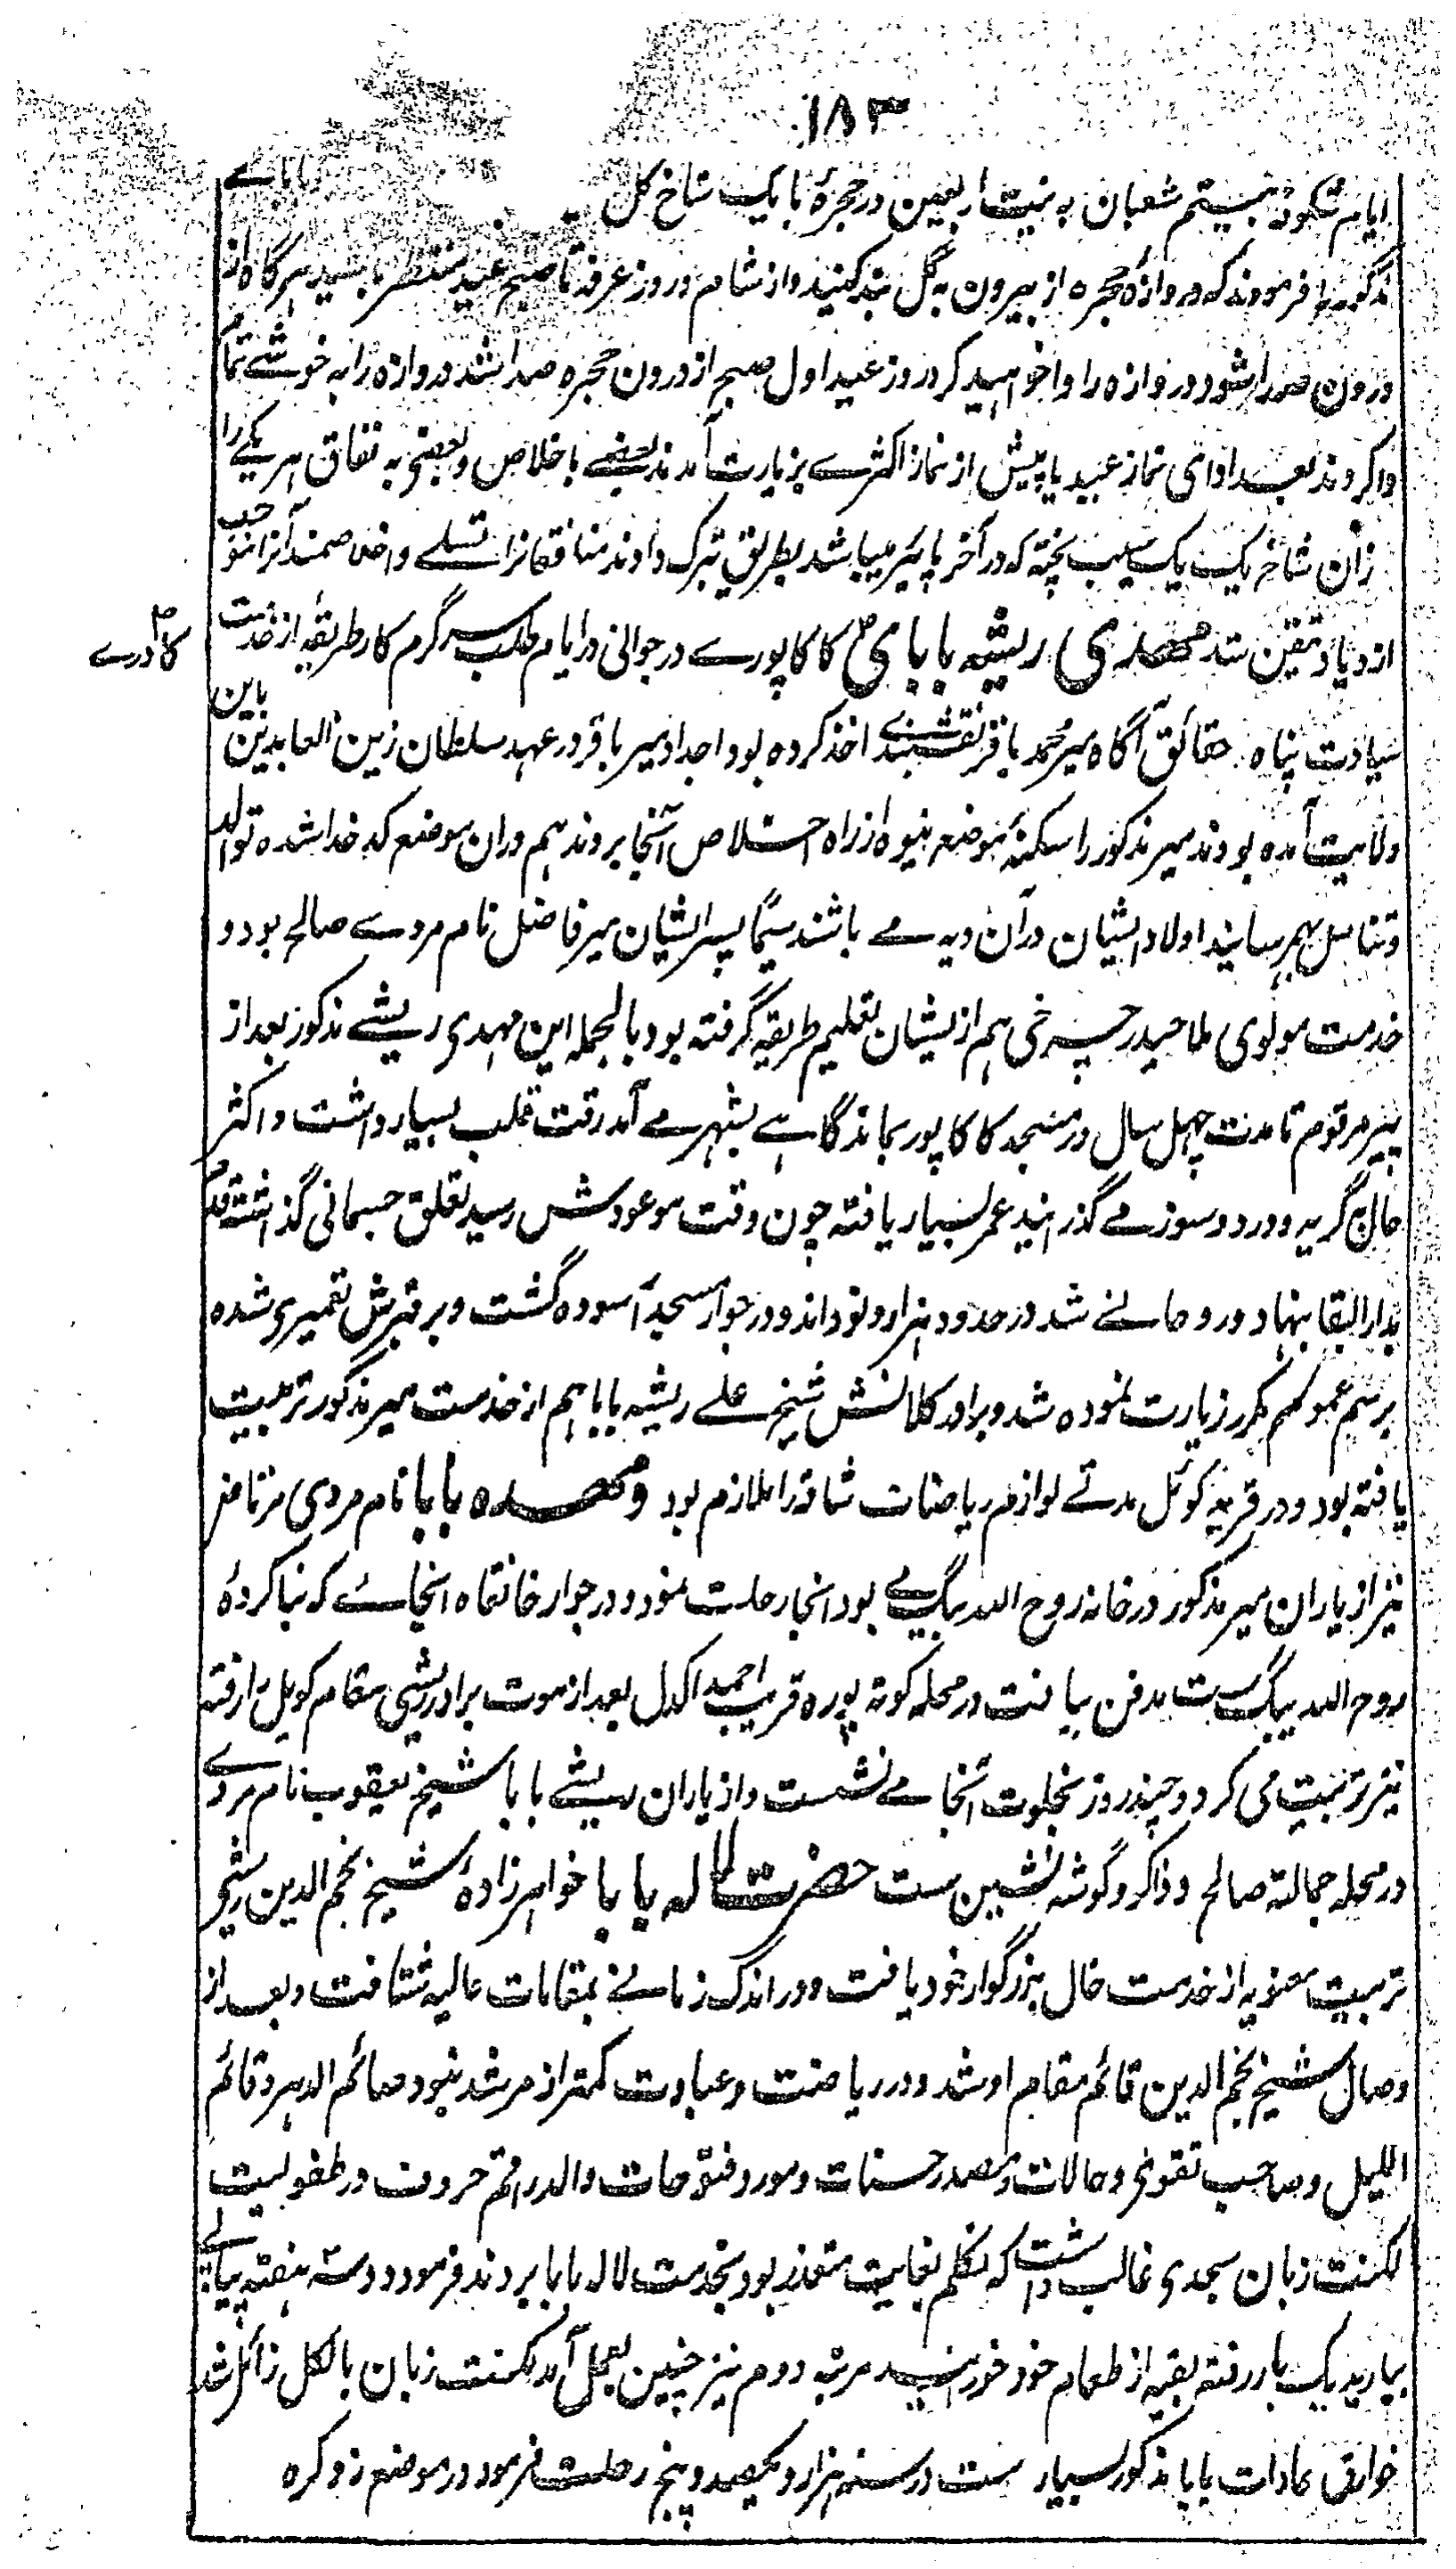 ۱۸۳
ایام شگوفه بیستم شعبان به نیت اربعین در حجرهٔ با یک شاخ گل بابای
مذکور فرمودند که دروازهٔ حجره از بیرون به گل بند کنید و از شام روز عرفه تا صبح عید منتظر باشید هرگاه از
درون صدا شود دروازه را وا خواهید کرد روز عید اول صبح از درون حجره صدا شد دروازه را به خوشی تمام
وا کردند بعد ادای نماز عید یا پیش از نماز اکثری بزیارت آمدند بعضی باخلاص و بعضی به نفاق هر یکی را
زان شاخ یک یک سیب پخته که در آخر پائیز میباشد بطریق تبرک دادند منافقانرا تسلی و اخلاصمندانرا موجب
ازدیاد یقین شد مهدی ریشه بابای کاکاپوری در جوانی در ایام طلب سرگرم کار طریقه از خدمت
کادری
سیادت پناه حقائق آگاه میر محمد باقر نقشبندی اخذ کرده بود اجداد میر باقر در عهد سلطان زین العابدین باین
ولایت آمده بودند میر مذکور را سکنهٔ موضع نیوه از راه اخلاص آنجا بردند هم دران موضع کدخدا شده توالد
و تناسل بهم رسانید اولاد ایشان در آن دیه می باشند سیما پسر ایشان میر فاضل نام مردی صالح بود و
خدمت مولوی ملا حیدر چرخی هم از یشان تعلیم طریقه گرفته بود بالجمله این مهدی ریشی مذکور بعد از
پیر مرقوم تا مدت چهل سال در مسجد کاکاپور بماند گاهی بشهر می آمد رقت قلب بسیار داشت و اکثر
حال گریه و درد و سوز می گذرانید عمر بسیار یافته چون وقت موعودش رسید تعلق جسمانی گذاشته قدم
بدار البقا نهاد و روحانی شد در حدود هزار و نود اند و در جوار مسجد آسوده گشت و بر قبرش تعمیری شده
برسم عموم مکرر زیارت نموده شد و برادر کلانش شیخ علی ریشه بابا هم از خدمت میر مذکور تربیت
یافته بود و در قریه کوئل مدتی لوازم ریاضات شاقه را ملازم بود و مهده بابا نام مردی مرتاض
نیز از یاران میر مذکور در خانه روح الله بیگ می بود آنجا رحلت نمود و در جوار خانقاه آنجائی که بنا کردهٔ
روح الله بیگ ست مدفن یافت در محله کوته پوره قریب احمد اکدل بعد از موت برادر ریشی مقام کویل را رفته
نیز تربیت می کرد و چند روز بخلوت آنجا می نشست و از یاران ریشی بابا شیخ یعقوب نام مردی
در محله جمالته صالح و ذاکر و گوشه نشین ست حضرت لاله بابا خواهرزادهٔ شیخ نجم الدین ریشی
تربیت معنویه از خدمت خال بزرگوار خود یافت و در اندک زمانی بمقامات عالیه شتافت و بعد از
وصال شیخ نجم الدین قائم مقام او شد و در ریاضت و عبادت کمتر از مرشد نبود صائم الدهر و قائم
اللیل و صاحب تقوی و حالات و مصدر حسنات و مورد فتوحات والد راقم حروف در طفولیت
لکنت زبان بحدی غالب داشت که تکلم بغایت متعذر بود بخدمت لاله بابا بردند فرمود دو سه هفته پیاپی
بیارید یک بار رفته بقیه از طعام خود خورانید مرتبه دوم نیز چنین بعمل آمد لکنت زبان بالکل زائل شد
خوارق عادات بابا مذکور بسیار ست در سنه هزار و یکصد و پنج رحلت فرمود در موضع زوکره